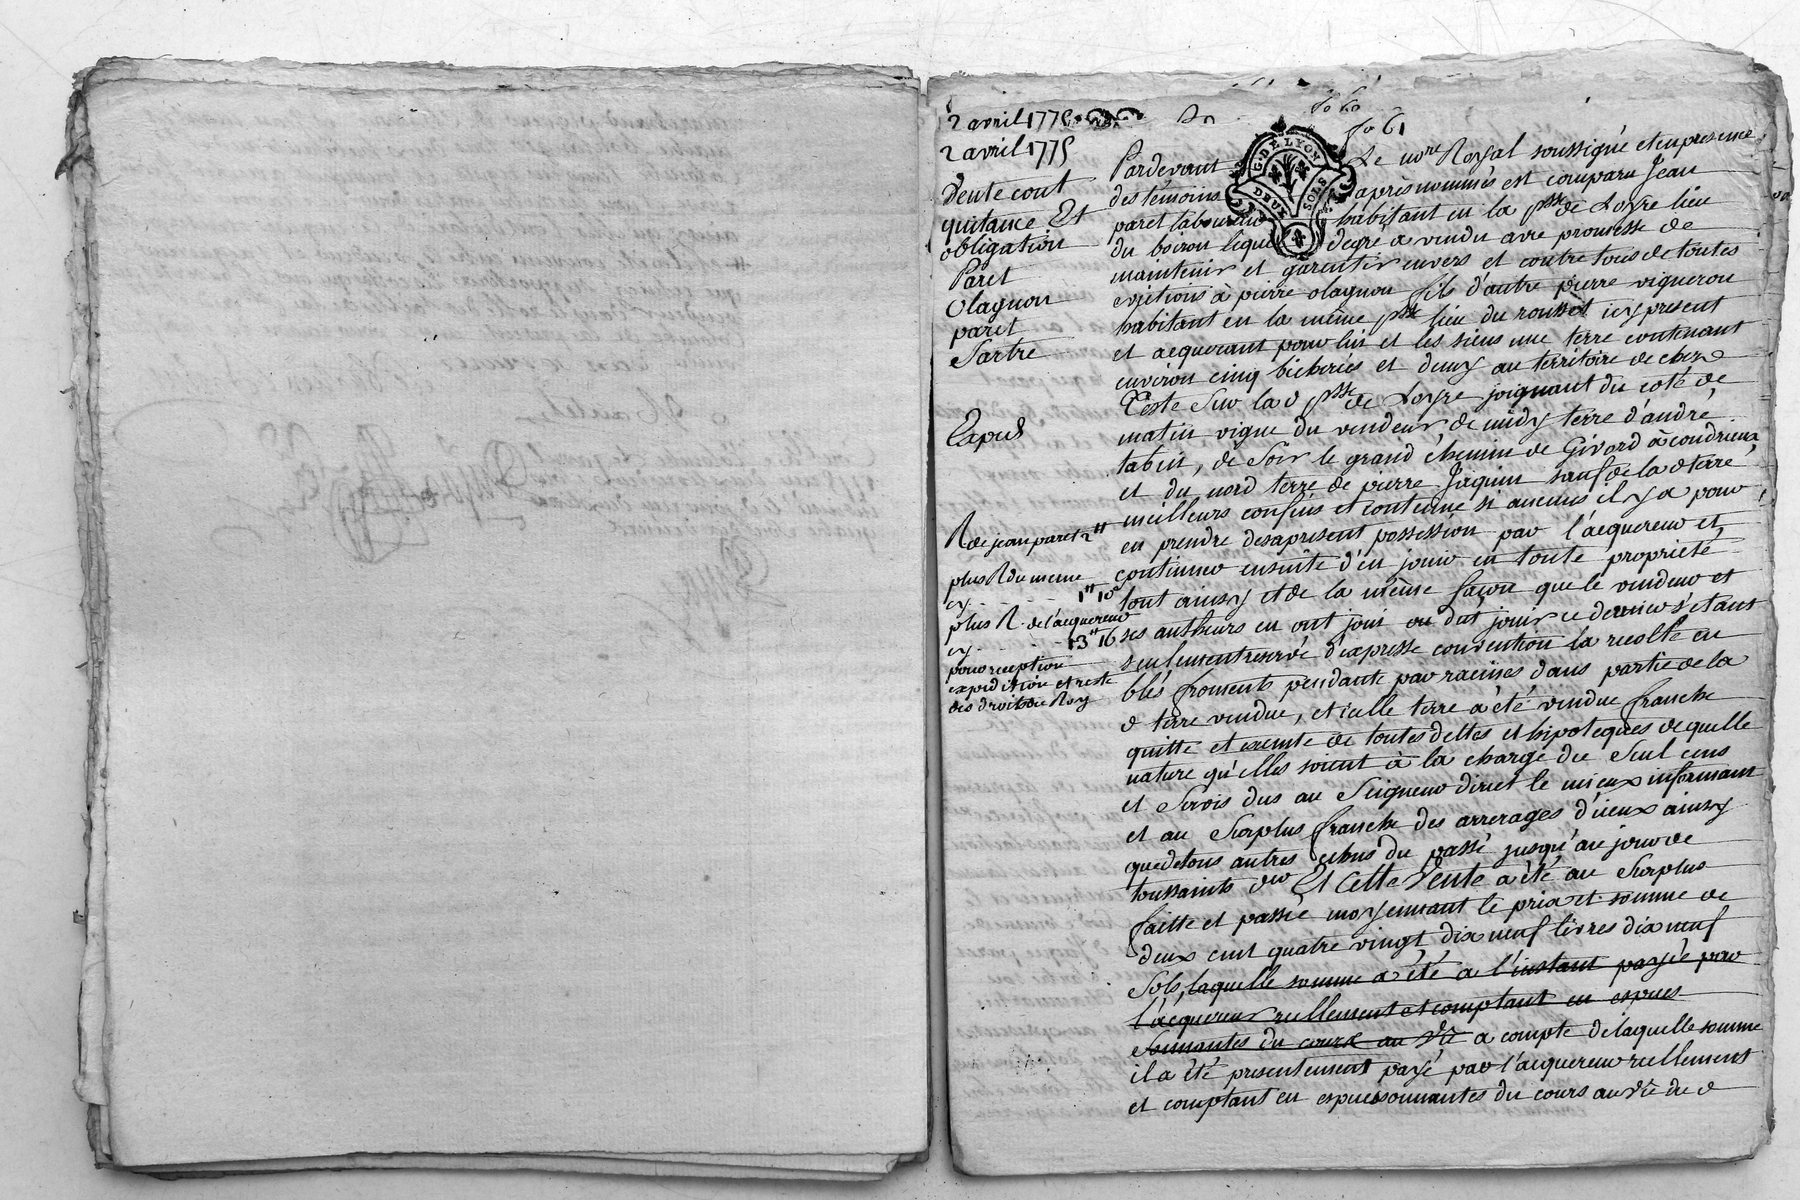 fo 60
fo 61
2 avril 1775
2 avril 1775
Vente cont
quitance Et
obligation
Paret
Olagnon
paret
Sartre
Expud
R de jean paret 2"
plus R du meme
cy 1" 10
plus R. de l'acquereur
cy 13" 16
pour reception
expedition et reste
des droits du Roy
G. DE LYON
DEUX SOLS
Pardevant Le nore Royal soussigné et en presence
des temoins après nommés est comparu Jean
paret laboureur habitant en la psse de Loyre lieu
du boiron lequel degré a vendu avec promesse de
maintenir et garentir envers et contre tous de toutes
evictions à pierre olagnon fils d'autre pierre vigneron
habitant en la même psse lieu du rousset icy present
et acquerant pour lui et les siens une terre contenant
environ cinq bicherées et demy au territoire de
Teste sur lad psse de Loyre joignant du coté de
matin vigne du vendeur de midy terre d'andré
tabin, de Soir le grand chemin de Givord à condrieux,
et du nord terre de pierre Jaquin sauf de la d terre
meilleurs confins et contenue si aucuns il y a pour
en prendre desapresent possession par l'acquereur et
continuer ensuite d'en jouir en toute propriété
tout ainsy et de la même façon que le vendeur et
ses autheurs en ont joui ou dût jouir ce dernier s'etant
seulement reservé d'expresse convention la recolte en
blés froments pendante par racines dans partie de la
d terre vendue, et icelle terre a été vendue franche
quitte et exemte de toutes dettes et hipoteques de quelle
nature qu'elles soient à la charge du Seul cens
et Servis dus au Seigneur direct le mieux informant
et au Surplus franche des arrerages d'iceux ainsy
que de tous autres du passé jusqu'au jour de
toussaints der Et Cette Vente a été au Surplus
faitte et passée moyennant le prix et somme de
deux cent quatre vingt dix neuf livres dix neuf
Sols, laquelle somme a été a l'instant payée par
l'acquereur reellement et comptant en especes
sonnantes du cours au Vû a compte de laquelle somme
il a été presentement payé par l'acquereur reellement
et comptant en especes sonnantes du cours au Vû du d